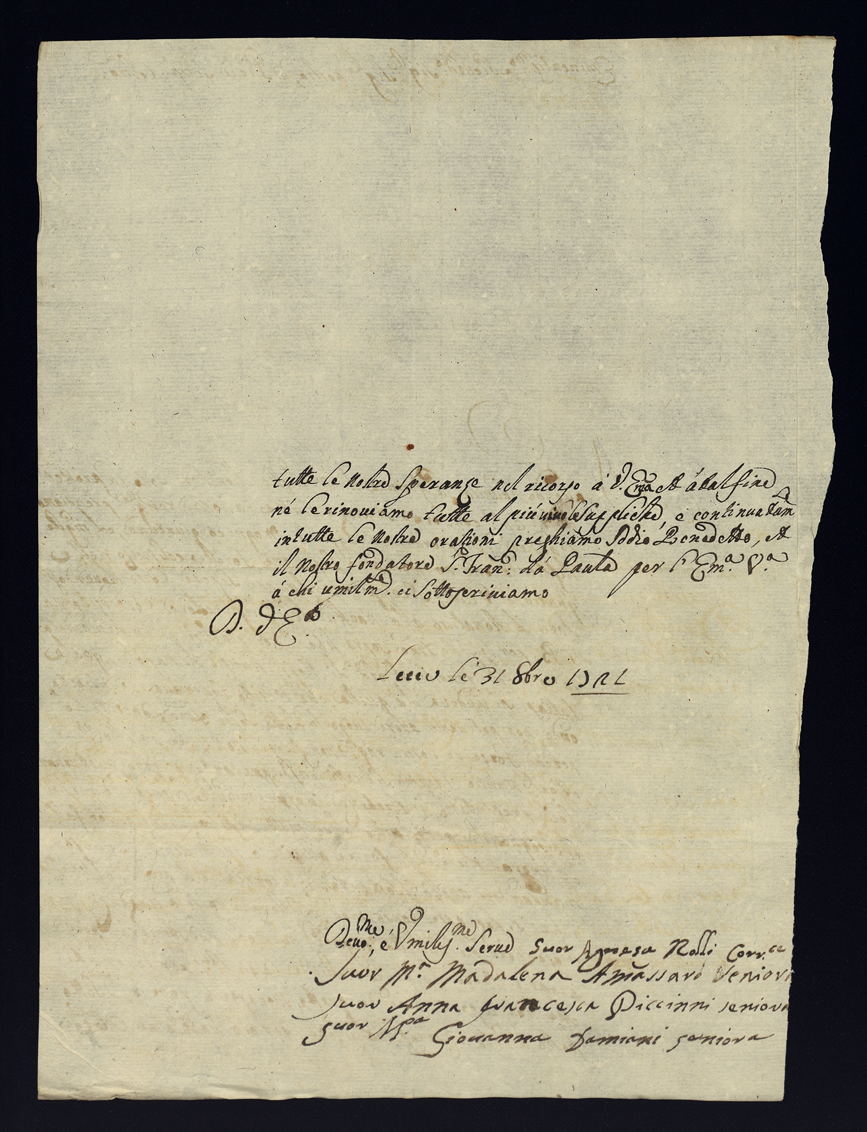 tutte le nostre Speranze nel ricorso à V. Em.a et à tal fine
né le rinoviamo tutte al più vivo le suppliche, e continuatam.e
in tutte le nostre orationi preghiamo Iddio Benedetto, et
il nostro fondatore S. Fran.o dà Paula per l'Em.a V.a
à chi umilm.e ci sottoscriviamo
D. V. Em.a
Lecce li 31 8bre 1721
Devo.me, è Umilis.me Serve Suor Agnesa Rolli Corr.ce
Suor M.a Madalena Amassari Seniora
Suor Anna Francesca Piccinni seniora
Suor M.a Giovanna Damiani seniora